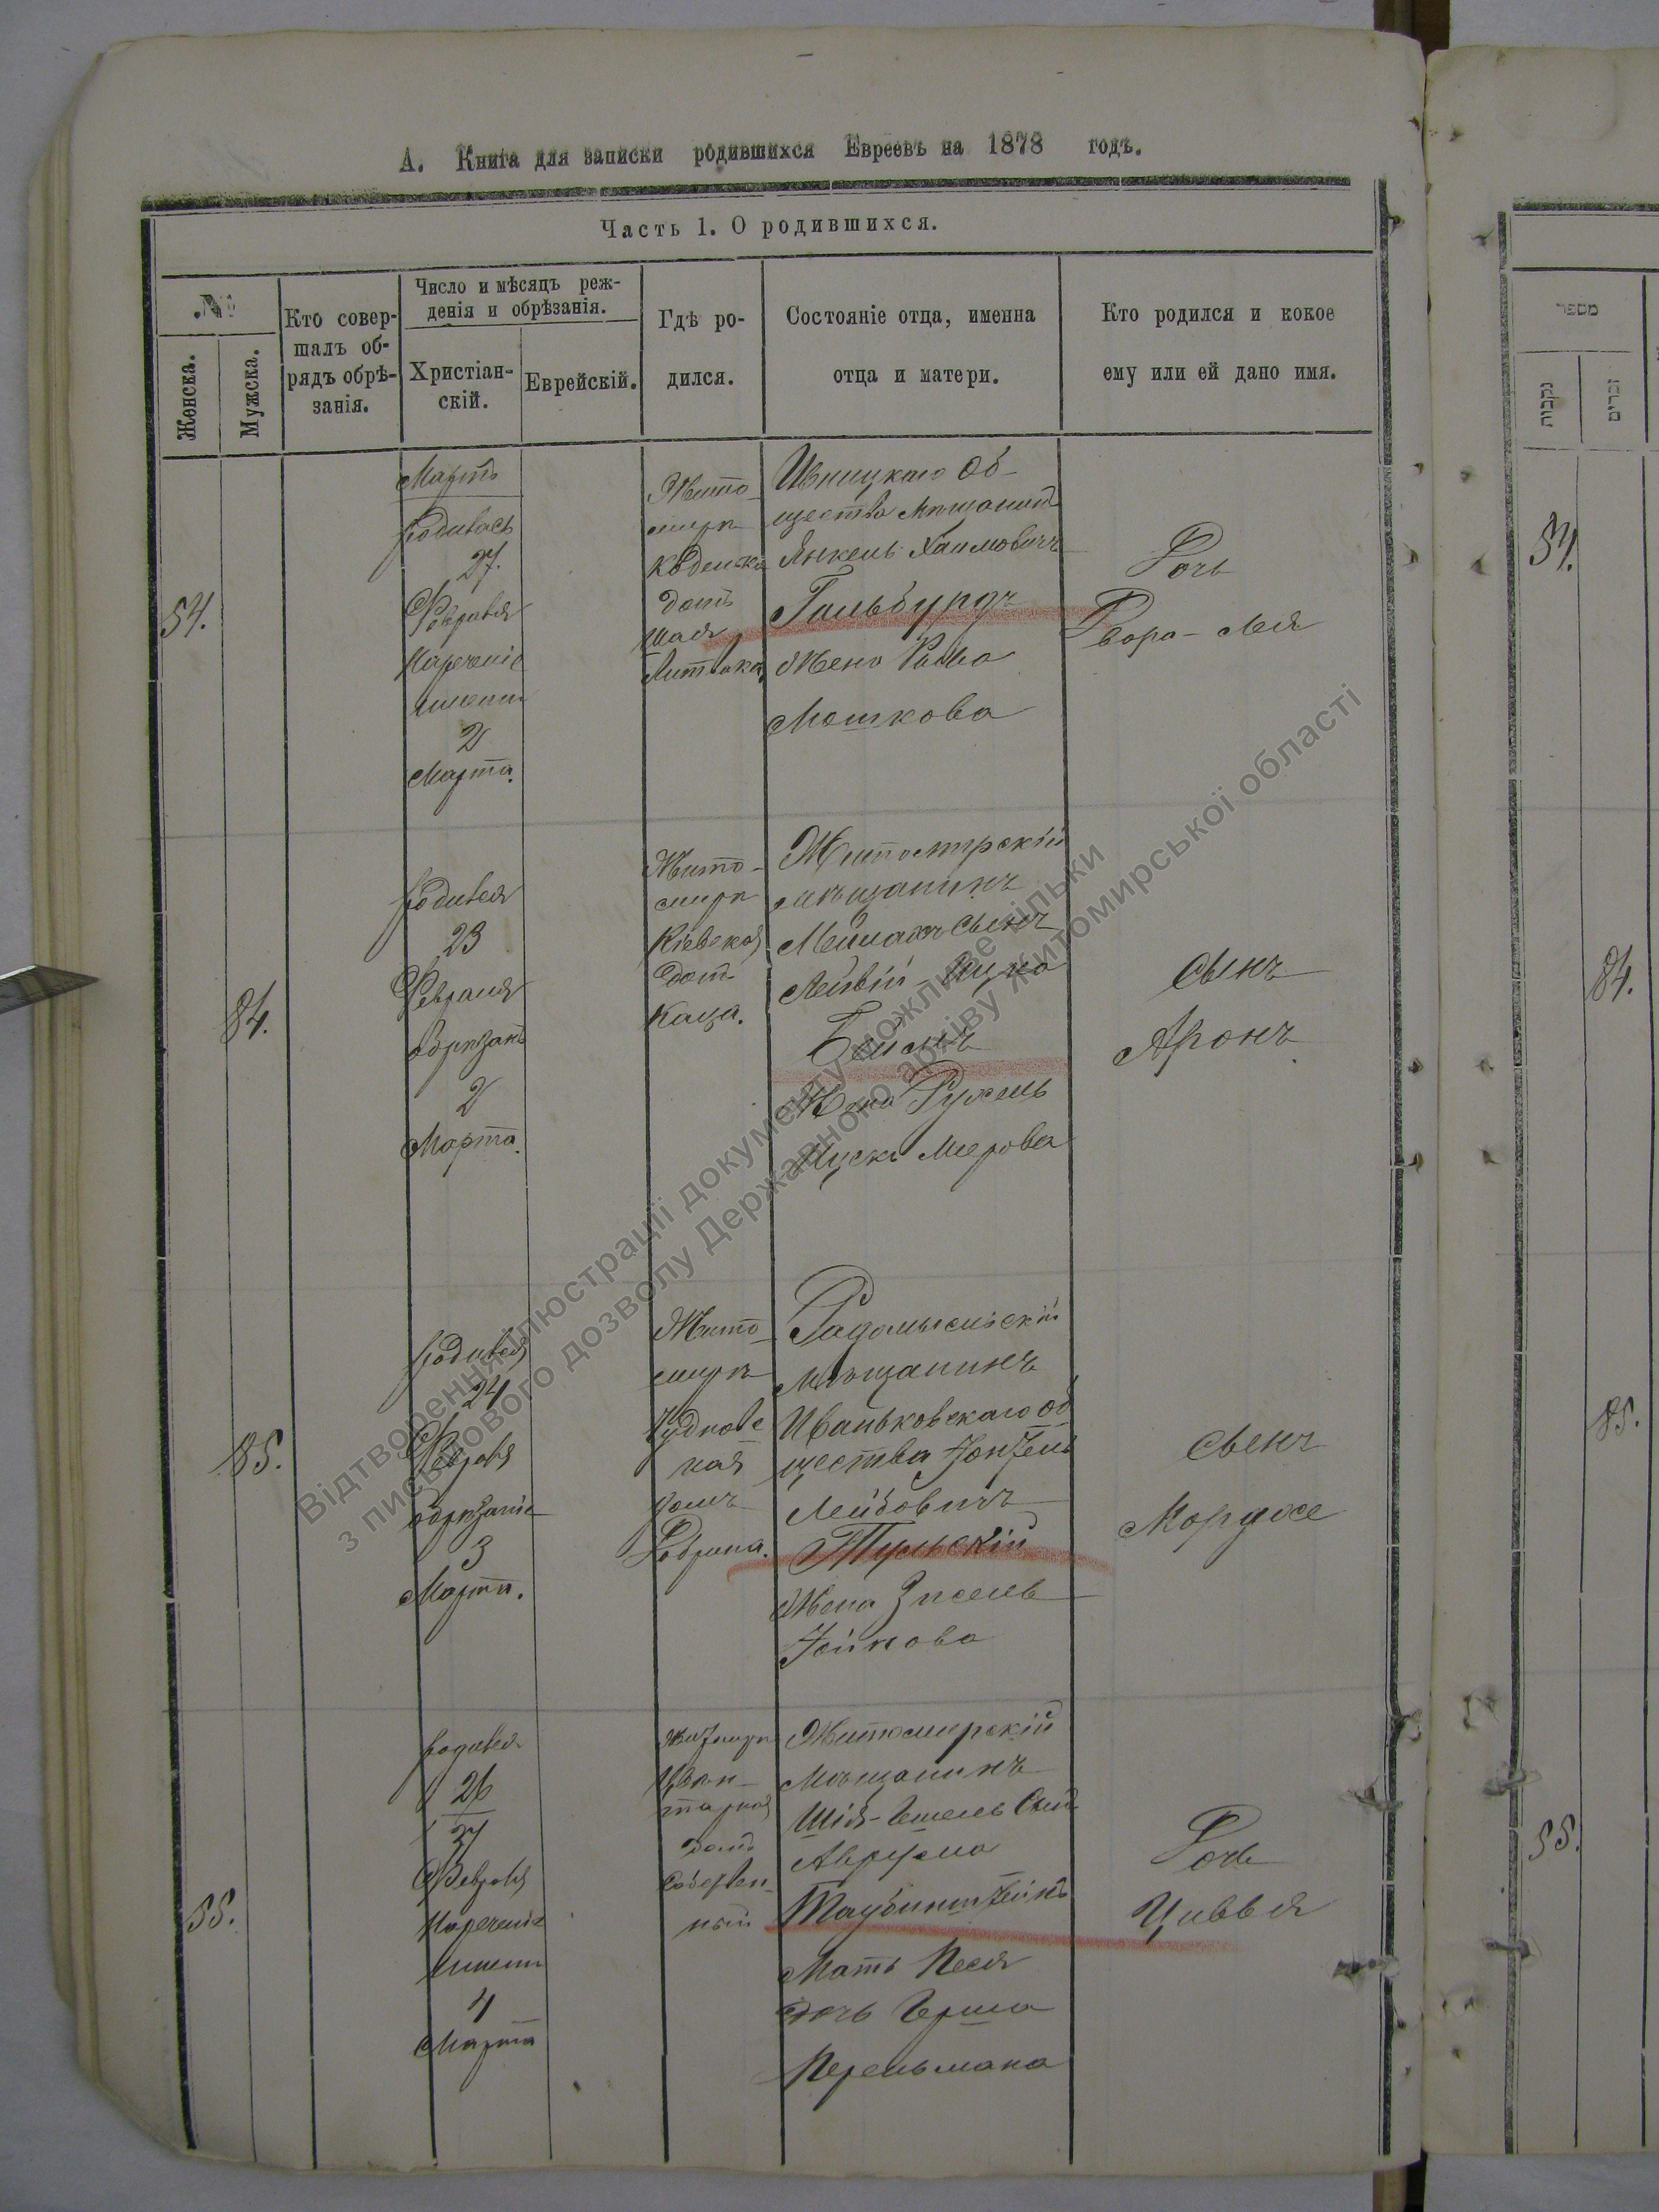 А. Книга для записки родившихся Евреевъ на 1878 годъ.
Часть 1. О родившихся.
№
Женска.
Мужска.
Кто совер-
шалъ об-
рядъ обрѣ-
занія.
Число и мѣсяцъ реж-
денія и обрѣзанія.
Христіан-
скій.
Еврейскій.
Гдѣ ро-
дился.
Состояніе отца, именна
отца и матери.
Кто родился и кокое
ему или ей дано имя.
54.
Мартъ
родилась
27.
Февраля
Нареченіе
имени
2
Марта.
Жито-
миръ
домъ
Шая
Литвака.
Ивницкаго Об-
щества Мѣщанинъ
Янкель Хаимовичъ
Гольбурдъ
Жена Рыва
Мошкова
Дочь
Двора-Лея
84.
родился
23
Февраля
обрѣзанъ
2
Марта.
Жито-
миръ
Кіевская
домъ
Каца.
Житомирскій
мѣщанинъ
сынъ
Жена Рухель
Меерова
сынъ
Аронъ
85.
родился
24
Февраля
обрѣзаніе
3
Марта.
Жито-
миръ
Чуднове
кая
домъ
Добрина.
Радомысльскій
мѣщанинъ
Иваньковскаго об
щества
Лейбовичъ
Тульскій
Жена
сынъ
Мордхе
55.
родился
26
27
Февраля
Нареченіе
имени
4
Марта
домъ
собствен-
ный
Житомирскій
Мѣщанинъ
Шія-Гешель Сынъ
Аврума
Таубинштейнъ
Мать Песя
дочь Герша
Перельмана
Дочь
Цивья
מספר
נקבות
זכרים
54.
84.
85.
55.
Відтворення ілюстрації документу можливе тільки
з письмового дозволу Державного архіву Житомирської області